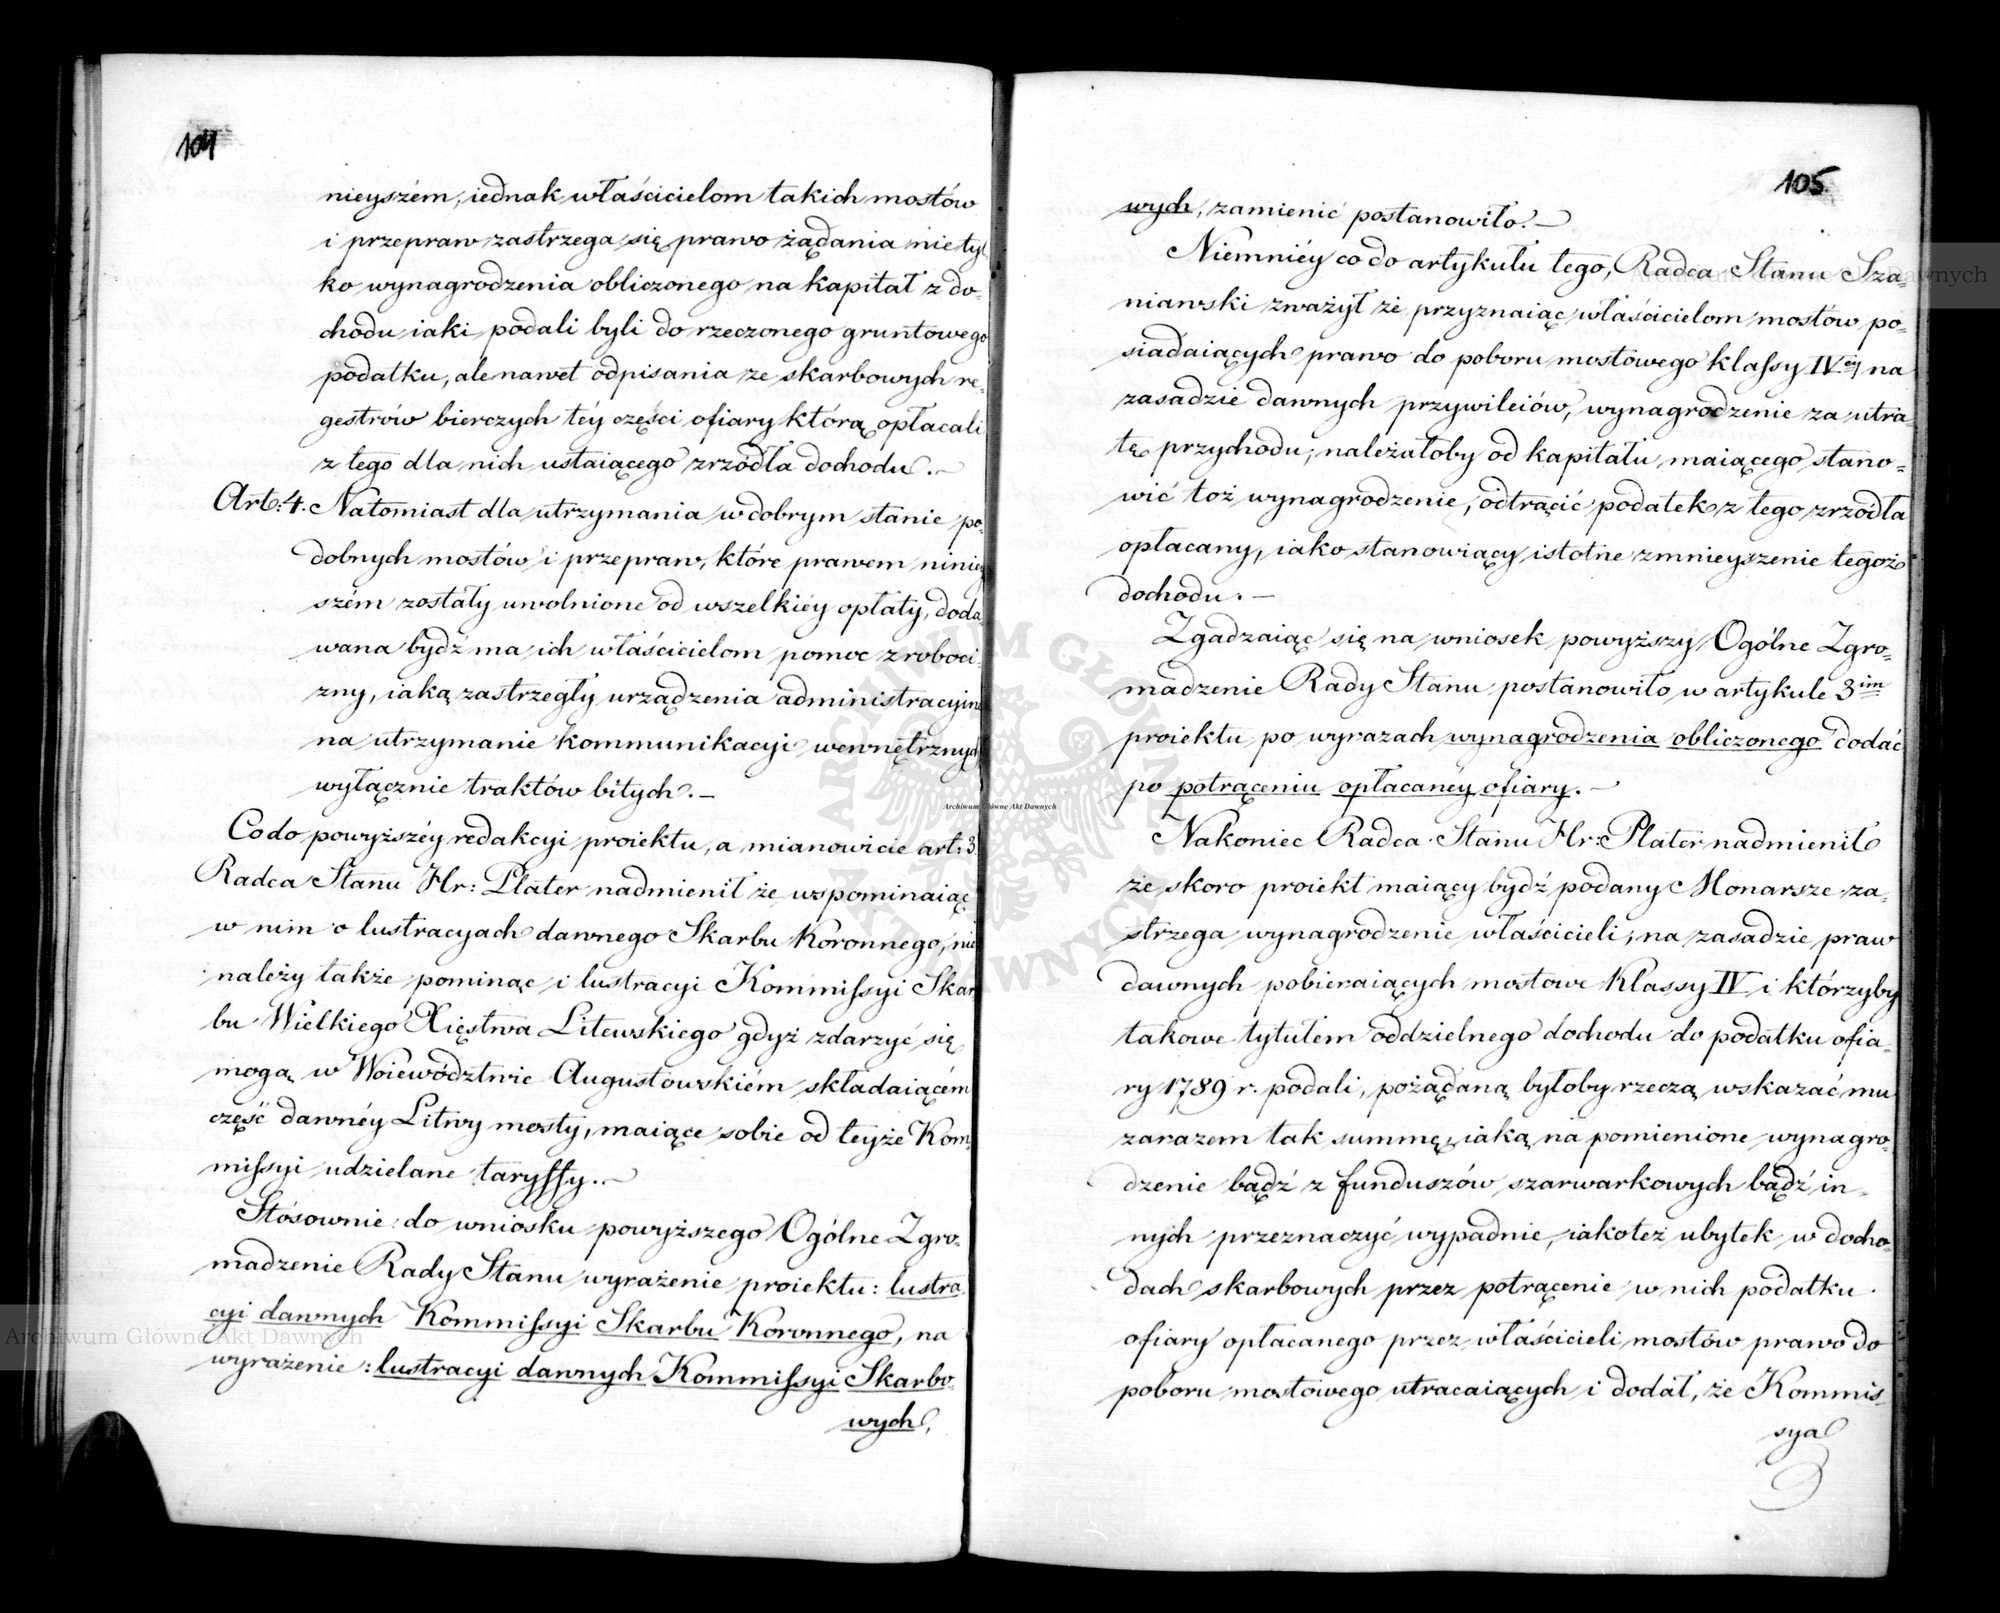 104
nieyszém, iednak właścicielom takich mostów
i przepraw zastrzega się prawo żądania nie tyl-
ko wynagrodzenia obliczonego na kapitał z do-
chodu iaki podali byli do rzeczonego gruntowego
podatku, ale nawet odpisania ze skarbowych re-
gestrów bierczych téy części ofiary którą opłacali
z tego dla nich ustaiącego zrzódła dochodu. —
Art: 4. Natomiast dla utrzymania w dobrym stanie po-
dobnych mostów i przepraw, które prawem niniey
szém zostały uwolnione od wszelkiéy opłaty, doda-
wana bydź ma ich właścicielom pomoc z roboci-
zny, iaką zastrzegły urządzenia administracyine
na utrzymanie kommunikacyi wewnętrznych
wyłącznie traktów bitych. —
Co do powyższéy redakcyi proiektu, a mianowicie art: 3
Radca Stanu Hr: Plater nadmienił że wspominaiąc
w nim o lustracyach dawnego Skarbu Koronnego, nie
należy także pominąć i lustracyi Kommissyi Skar
bu Wielkiego Xięstwa Litewskiego gdyż zdarzyć się
mogą w Woiewództwie Augustowskiém składaiącém
część dawnéy Litwy mosty, maiące sobie od teyże Kom
missyi udzielane taryffy. —
Stósownie do wniosku powyższego Ogólne Zgro-
madzenie Rady Stanu wyrażenie proiektu: lustra
cyi dawnych Kommissyi Skarbu Koronnego, na
wyrażenie: lustracyi dawnych Kommissyi Skarbo-
wych,
105
wych, zamienić postanowiło. —
Niemniéy co do artykułu tego, Radca Stanu Sza-
niawski zważył że przyznaiąc właścicielom mostów po-
siadaiących prawo do poboru mostowego klassy IVéy na
zasadzie dawnych przywileiów, wynagrodzenie za utra-
tę przychodu, należałoby od kapitału maiącego stano-
wić toż wynagrodzenie, odtrącić podatek z tego zrzódła
opłacany, iako stanowiący istotne zmnieyszenie tegoż
dochodu. —
Zgadzaiąc się na wniosek powyższy Ogólne Zgro-
madzenie Rady Stanu postanowiło w artykule 3im
proiektu po wyrazach wynagrodzenia obliczonego dodać
po potrąceniu opłacanéy ofiary. —
Nakoniec Radca Stanu Hr: Plater nadmienił
że skoro proiekt maiący bydź podany Monarsze za-
strzega wynagrodzenie właścicieli, na zasadzie praw
dawnych pobieraiących mostowe Klassy IV i którzyby
takowe tytułem oddzielnego dochodu do podatku ofia-
ry 1789 r. podali, pożądaną byłoby rzeczą wskazać mu
zarazem tak summę iaką na pomienione wynagro-
dzenie bądź z funduszów szarwarkowych bądź in-
nych przeznaczyć wypadnie, iakoteż ubytek w docho-
dach skarbowych przez potrącenie w nich podatku
ofiary opłacanego przez właścicieli mostów prawo do
poboru mostowego utracaiących i dodał, że Kommis-
sya